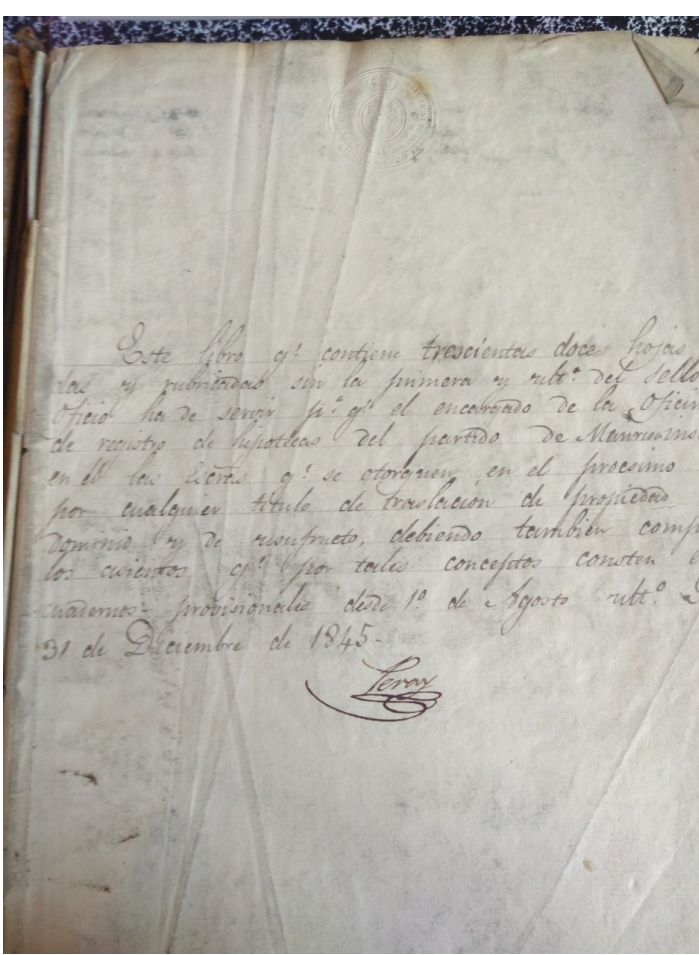 Este libro qᵉ contiene trescientas doce hojas
das y rubricadas sin la primera y ultª del Sello
Oficio ha de servir pª qᵉ el encargado de la Oficin
de registro de hipotecas del partido de
en él las Escrªs qᵉ se otorguen en el procsimo
por cualquier titulo de traslación de propiedad
Dominio y de usufructo, debiendo tambien comp
los asientos qᵉ por tales conceptos consten
cuadernos provisionales desde 1º de Agosto ultº
31 de Diciembre de 1845-
Leroy